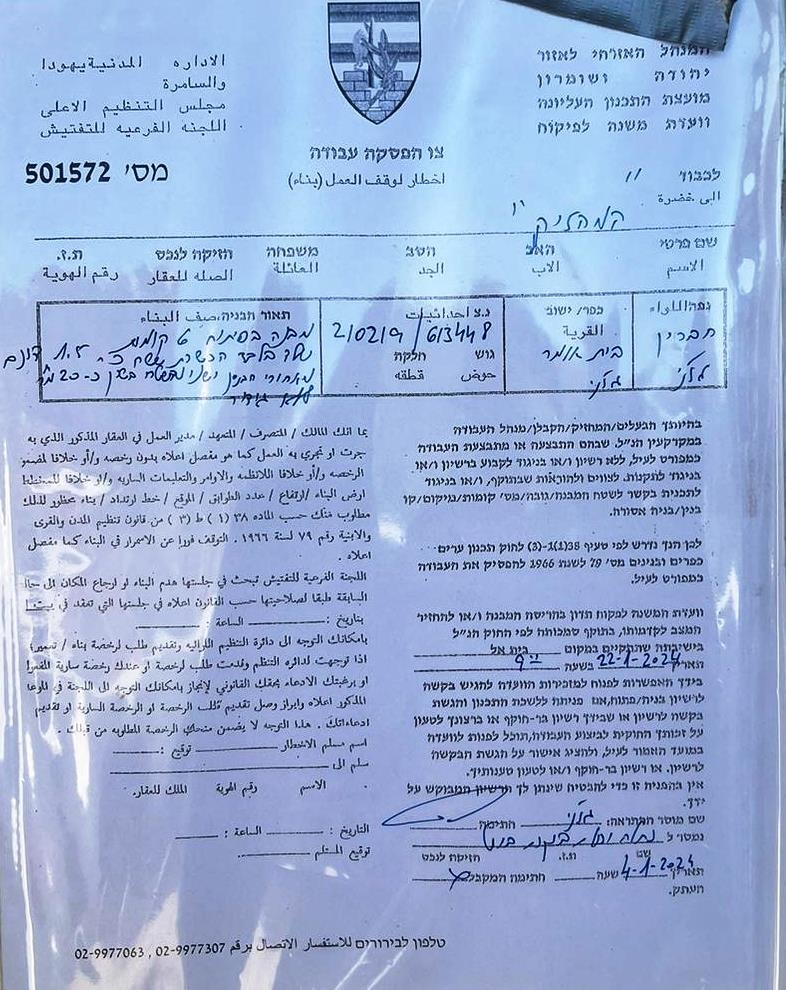 המנהל האזרחי לאזור
יהודה ושומרון
מועצת התכנון העליונה
וועדת משנה לפיקוח
الاداره المدنية يهودا
والسامرة
مجلس التنظيم الاعلى
اللجنه الفرعيه للتفتيش
צו הפסקה עבודה
اخطار لوقف العمل (بناء)
מס' 501572
לכבוד
الى حضرة
המחזיק
שם פרטי האב הסב משפחה חזיקה לנכס ת.ז.
الاسم الاب الجد العائلة الصله للعقار رقم الهوية
נפה اللواء
חברון
כפר/ ישוב
القرية
בית אומר
נ.צ احداثيات
210219/613448
גוש חלקה
حوض قطعه
תאור הבניה, وصف البناء
מבנה בסיסית 6 קומות
1.5 דונם
בהיותך הבעלים/המחזיק/הקבלן/מנהל העבודה
במקרקעין הנ"ל, שבהם התבצעה או מתבצעת העבודה
כמפורט לעיל, ללא רשיון ו/או בניגוד לקבוע ברשיון ו/או
בניגוד לתקנות, לצווים ולהוראות שבתוקף, ו/או בניגוד
לתכנית בקשר לשטח המבנה/גובה/מס' קומות/מיקום/קו
בנין/בניה אסורה.
לכן הנך נדרש לפי סעיף 38(1)-(3) לחוק תכנון ערים
כפרים ובנינים מס' 79 לשנת 1966 להפסיק את העבודה
כמפורט לעיל.
וועדת המשנה לפקוח תדון בהריסת המבנה ו/או להחזיר
המצב לקדמותו, בתוקף סמכותה לפי החוק הנ"ל
בישיבתה שתתקיים במקום בית אל
תאריך 22-1-2024 בשעה 9
בידך האפשרות לפנות למזכירות הוועדה להגיש בקשה
לרשיון בניה/פתוח, אם פניתה ללשכת התכנון והגשת
בקשה לרשיון או שבידך רשיון בר-תוקף או ברצונך לטעון
על זכותך החוקית לביצוע העבודה, תוכל לפנות לוועדה
במועד האמור לעיל, ולהציג אישור על הגשת הבקשה
לרשיון, או רשיון בר-תוקף ו/או לטעון טענותיך.
אין בהפניה זו כדי להבטיח שינתן לך הרשיון המבוקש על
ידך.
שם מוסר ההתראה: חתימה
נמסר ל
שם ת.ז. חזיקה לנכס
תאריך 4-1-2024 שעה חתימה המקבל
העתק.
بما انك المالك / المتصرف / المتعهد / مدير العمل في العقار المذكور الذي به
جرت او تجري به العمل كما هو مفصل اعلاه بدون رخصه و/أو خلافا
الرخصه و/أو خلافا للانظمه والاوامر والتعليمات الساريه و/أو خلافا للمخطط
ارض البناء /ارتفاع / عدد الطوابق / الموقع / خط ارتداد / بناء محظور لذلك
مطلوب منك حسب الماده ٣٨ (١) ط (٣) من قانون تنظيم المدن والقرى
والابنية رقم ٧٩ لسنة ١٩٦٦ . التوقف فورا عن الاستمرار في البناء كما مفصل
اعلاه .
اللجنه الفرعية للتفتيش تبحث في جلستها هدم البناء او ارجاع المكان الى
السابقة طبقا لصلاحيتها حسب القانون اعلاه في جلستها التي تعقد في
بتاريخ : الساعة :
بامكانك التوجه الى دائرة التنظيم اللوائيه وتقديم طلب لرخصة بناء /
اذا توجهت لدائره التنظم وقدمت طلب لرخصة او عندك رخصة سارية
او برغبتك الادعاء بحقك القانوني لإنجاز بامكانك التوجه الى اللجنة في
المذكور اعلاه وابراز وصل تقديم طلب الرخصة او الرخصة السارية او تقديم
ادعاءاتك . هذا التوجه لا يضمن منحك الرخصة المطلوبه من قبلك .
اسم مسلم الاخطار توقيع :
سلم الى
الاسم رقم الهوية الملك للعقار .
التاريخ : الساعة :
توقيع المستلم
טלפון לבירורים للاستفسار الاتصال برقم 02-9977307 , 02-9977063